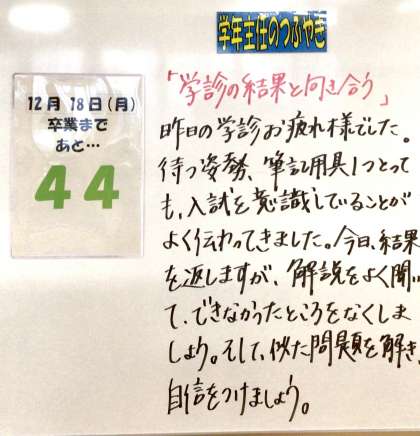 学年主任のつぶやき
12月 18日(月)
卒業まで
あと…
44
「学診の結果と向き合う」
昨日の学診お疲れ様でした。
待つ姿勢、筆記用具1つとって
も、入試を意識していることが
よく伝わってきました。今日、結果
を返しますが、解説をよく聞い
て、できなかったところをなくしま
しょう。そして、似た問題を解き、
自信をつけましょう。